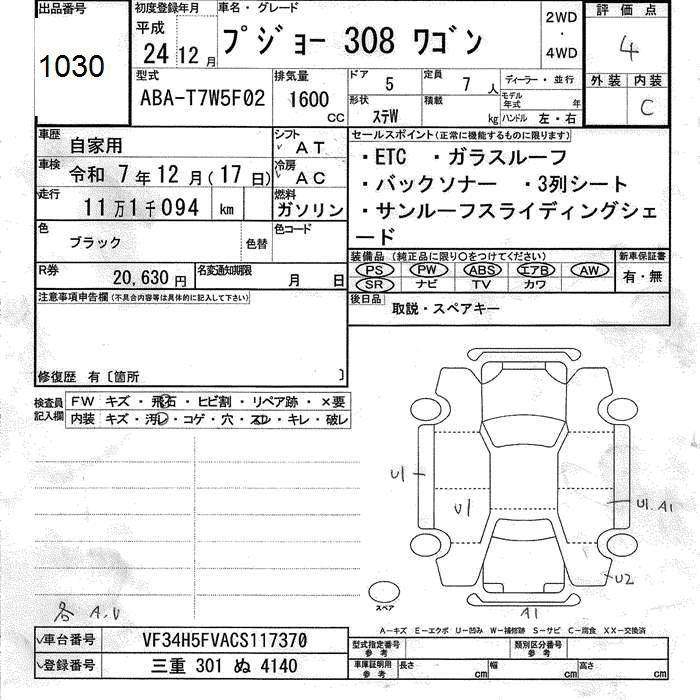 出品番号
1030
初度登録年月
平成
24年12月
車名・グレード
プジョー 308 ワゴン
2WD
・
4WD
評価点
4
外装 内装
C
型式
ABA-T7W5F02
排気量
1600
CC
ドア 5
定員 7人
ディーラー・並行
形状 ステW
積載 kg
モデル年式 年
ハンドル 左・右
車歴 自家用
シフト AT
車検 令和 7年12月(17日)
冷房 AC
走行 11万1千094 km
燃料 ガソリン
色 ブラック
色替
色コード
R券 20,630円
名変通知期限 月 日
セールスポイント(正常に機能するものに限ります)
・ETC ・ガラスルーフ
・バックソナー ・3列シート
・サンルーフスライディングシェ
ード
装備品(純正品に限り○をつけてください)
新車保証書
PS PW ABS エアB AW
SR ナビ TV カワ
有・無
後日品 取説・スペアキー
注意事項申告欄(不具合内容等は具体的に記入して下さい)
修復歴 有〔箇所 〕
検査員記入欄
FW キズ・飛石・ヒビ割・リペア跡・×要
内装 キズ・汚レ・コゲ・穴・スレ・キレ・破レ
U1
U1
U1.A1
U2
A1
スペア
各 A.U
A-キズ E-エクボ U-凹み W-補修跡 S-サビ C-腐食 XX-交換済
車台番号 VF34H5FVACS117370
登録番号 三重 301 ぬ 4140
型式指定番号 参考
類別区分番号 参考
車庫証明用 参考
長さ cm
幅 cm
高さ cm